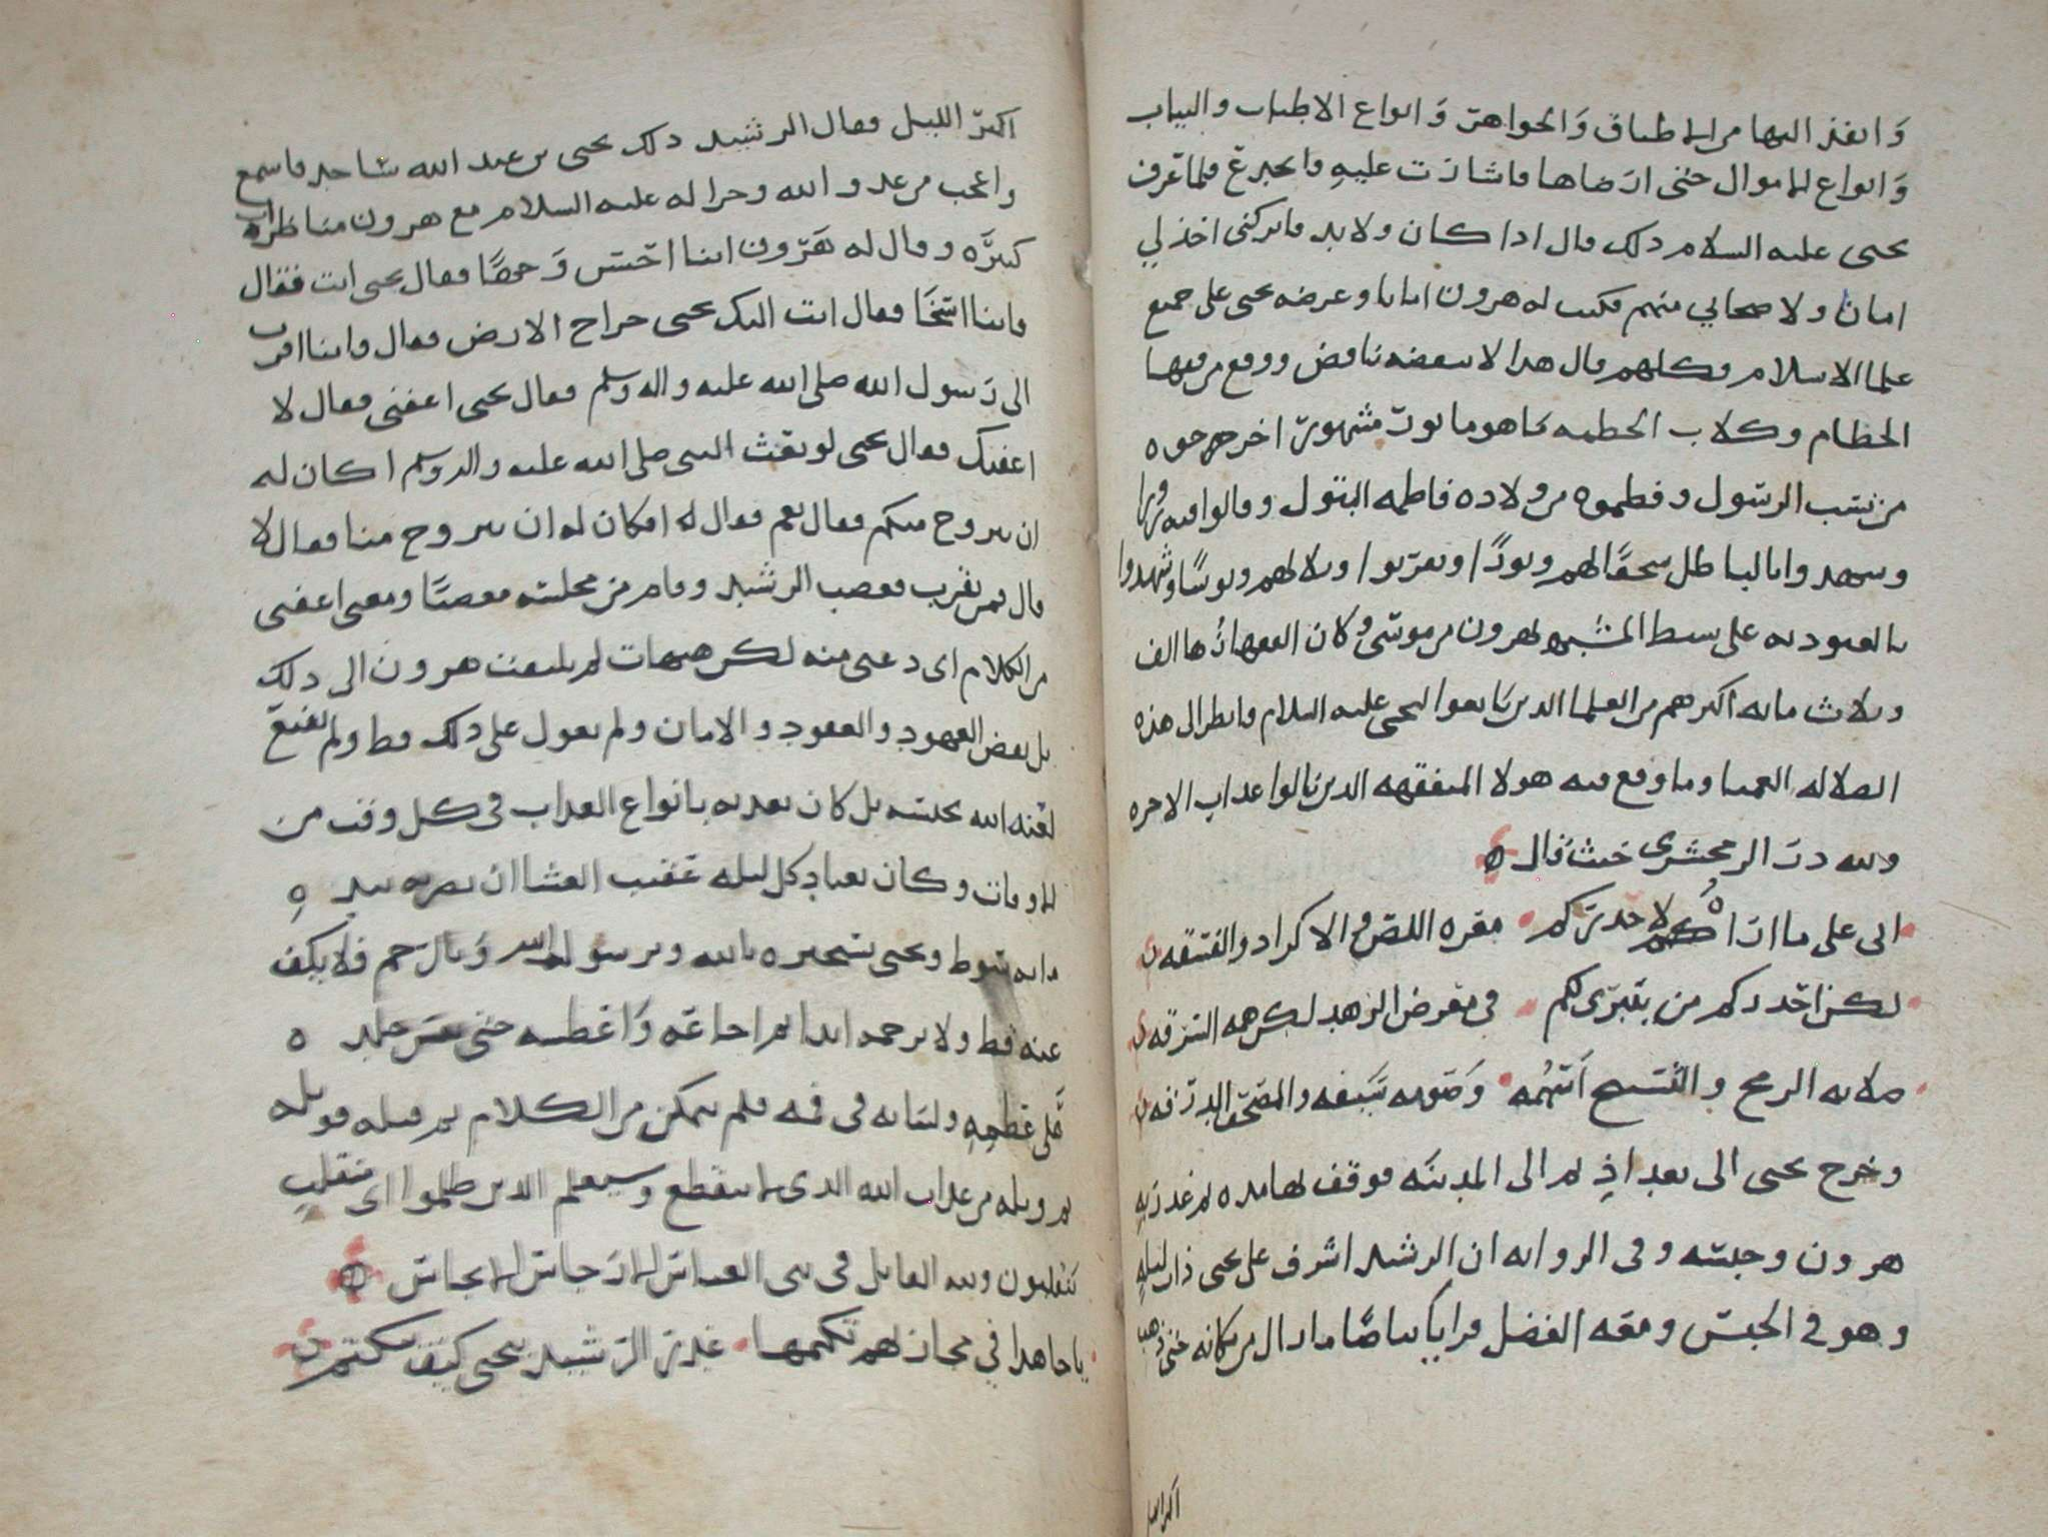 وانفذ اليها من الاطباق والجواهر وانواع الاطياب والثياب
وانواع الاموال حتى ارضاها فاشارت عليه فلما عرف
يحيى عليه السلام ذلك قال اذا كان ولابد ما تركتي اخذ لي
امانا ولاصحابي منهم فكتب له هرون امانا وعرضه يحيى على جميع
علما الاسلام وكلهم قال هذا لا ينقضه ناقض ووقع من فقها
الحطام وكلاب الحطمه ما هو ماثور مشهور اخرجوه
من نسب الرسول وفطموه من ولاده فاطمه البتول وقالوا فيه زورا
وشهدوا بالباطل سحقا لهم وبعدا وثبورا لهم وبوسا وشهدوا
بالعبوديه على سبط لهرون من موسى وكان الفقها زها الف
وثلاث مايه اكثرهم من العلما الذين بايعوا ليحيى عليه السلام فانظر الى هذه
الضلاله العميا وما وقع فيه هولا المتفقهه الذين نالوا عذاب الاخره
ولله در الزمخشري حيث قال
اني على ما اراكم لا حذركم معره اللص والاكراد والفسقه
لكن احذركم من ينبري لكم في معرض الزهد لكن همه السرقه
صلاته الرمح والتسبيح اسهمه وصومه سيفه والمصحف الدرقه
وخرج يحيى الى بغداذ ثم الى المدينه فوقف بها مده ثم غدر به
هرون وحبسه وفي الروايه ان الرشيد اشرف على يحيى ذات ليله
وهو في الحبس ومعه الفضل فراى بياضا ما زال من مكانه حتى ذهب
اكثر الليل
اكثر الليل فقال الرشيد ذلك يحيى بن عبد الله ساجد فاسمع
واعجب من عدو الله وجرا له عليه السلام مع هرون مناظرات
كثيره وقال له هرون اينا احسن وجها فقال يحيى انت فقال
فاينا اسخا فقال انت اليك يجبى خراج الارض فقال واينا اقرب
الى رسول الله صلى الله عليه واله وسلم فقال يحيى اعفني فقال لا
اعفيك فقال يحيى لو بعث النبي صلى الله عليه واله وسلم اكان له
ان يتزوج منكم فقال نعم فقال له افكان له ان يتزوج منا فقال لا
قال فمن يقرب فغضب الرشيد وقام من مجلسه مغضبا ومعنى اعفني
من الكلام اي دعني منه لكن هيهات لم يلتفت هرون الى ذلك
بل نقض العهود والعقود والامان ولم يعول على ذلك قط ولم يقنع
لعنه الله بحبسه بل كان يعذبه بانواع العذاب في كل وقت من
الاوقات وكان يعتاد كل ليله عقيب العشا ان يضربه بيده
مايه سوط ويحيى يستجيره بالله وبرسول الله وبالرحم فلا يكف
عنه قط ولا يرحمه ابدا ثم اجاعه واعطشه حتى
ولسانه في فمه فلم يتمكن من الكلام ثم قتله فويله
ثم ويله من عذاب الله الذي لا ينقطع وسيعلم الذين ظلموا اي منقلب
ينقلبون ولله القايل في بني العباس الارجاس الانجاس
يا جاهدا في مجاز لهم تكتمها غدر الرشيد بيحيى كيف مكتتم